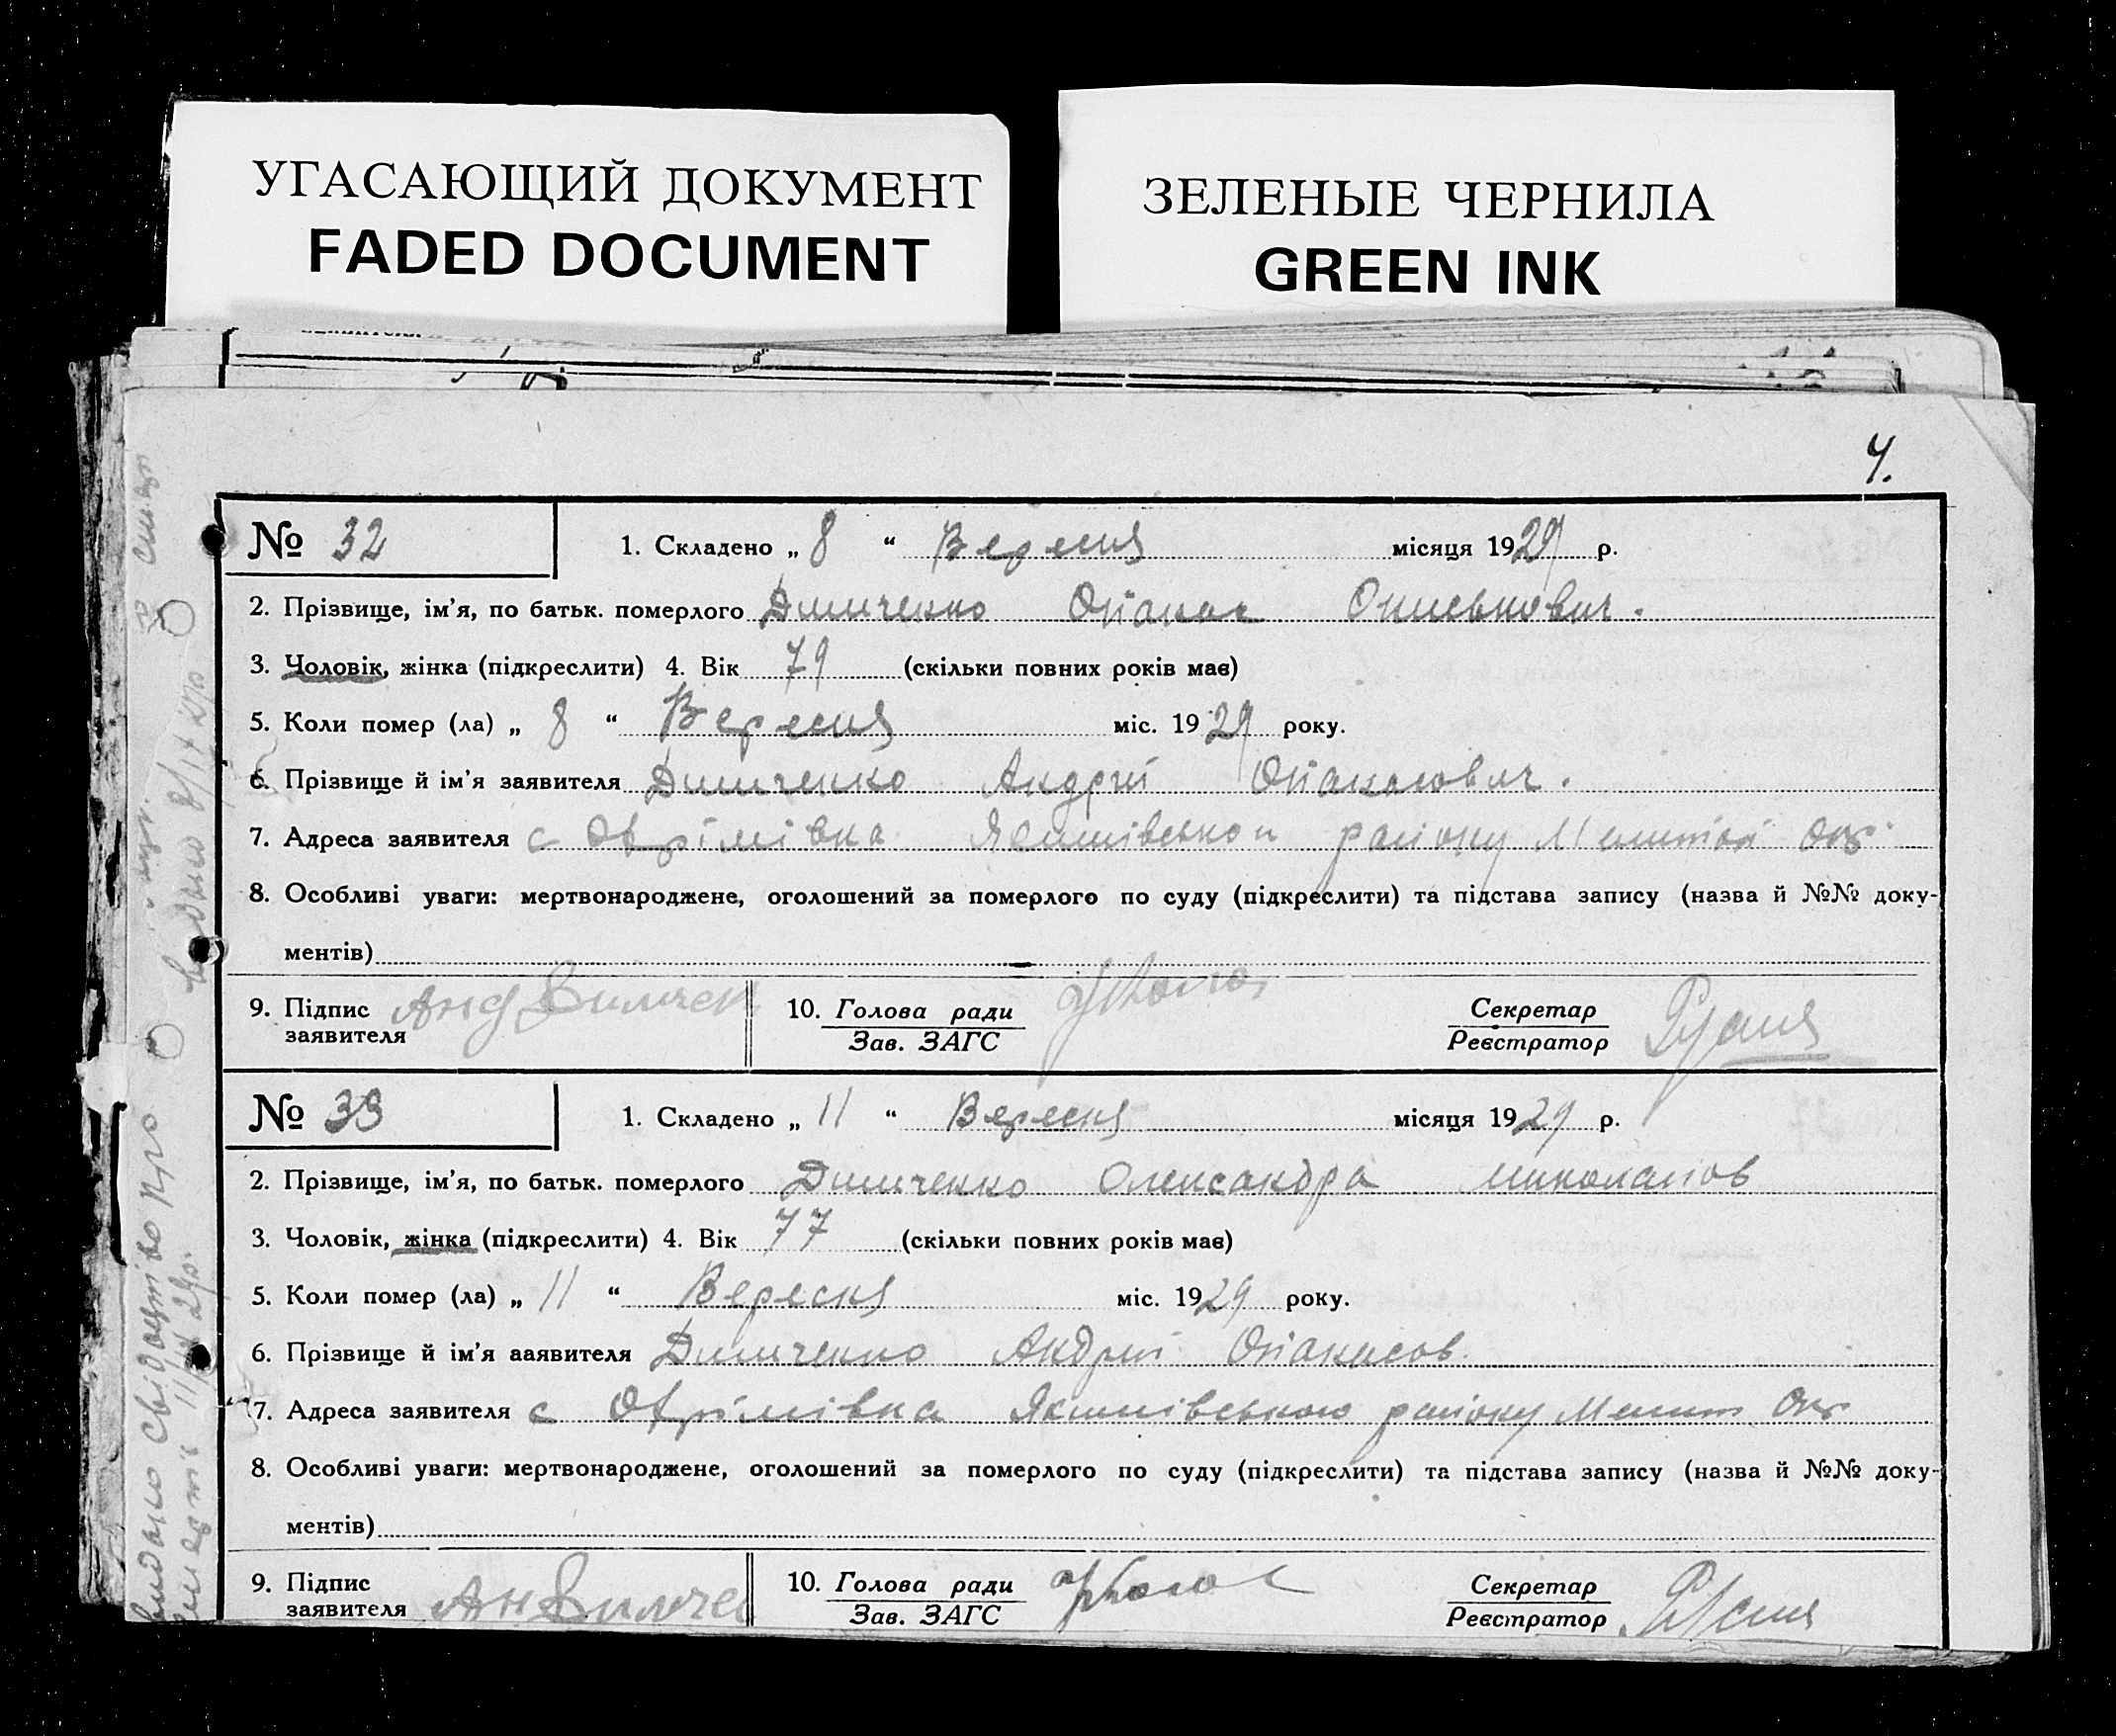 УГАСАЮЩИЙ ДОКУМЕНТ
FADED DOCUMENT
ЗЕЛЕНЫЕ ЧЕРНИЛА
GREEN INK
4.
№ 32
1. Складено „ 8 “ Вересня місяця 1929 р.
2. Прізвище, ім’я, по батьк. померлого Димченко Опанас
3. Чоловік, жінка (підкреслити) 4. Вік 79 (скільки повних років має)
5. Коли помер (ла) „ 8 “ Вересня міс. 1929 року.
6. Прізвище й ім’я заявителя Димченко Андрій Опанасович.
7. Адреса заявителя с району Мелитоп Окр
8. Особливі уваги: мертвонароджене, оголошений за померлого по суду (підкреслити) та підстава запису (назва й №№ доку-
ментів)
9. Підпис
заявителя
10. Голова ради
Зав. ЗАГС
Секретар
Реєстратор
№ 33
1. Складено „ 11 “ Вересня місяця 1929 р.
2. Прізвище, ім’я, по батьк. померлого Димченко Олександра Миколаїов
3. Чоловік, жінка (підкреслити) 4. Вік 77 (скільки повних років має)
5. Коли помер (ла) „ 11 “ Вересня міс. 1929 року.
6. Прізвище й ім’я заявителя Димченко Андрій Опанасов.
7. Адреса заявителя с Якимівського району Мелит Окр
8. Особливі уваги: мертвонароджене, оголошений за померлого по суду (підкреслити) та підстава запису (назва й №№ доку-
ментів)
9. Підпис
заявителя
10. Голова ради
Зав. ЗАГС
Секретар
Реєстратор
видано свідоцтво про
смерть 11/IX 29р.